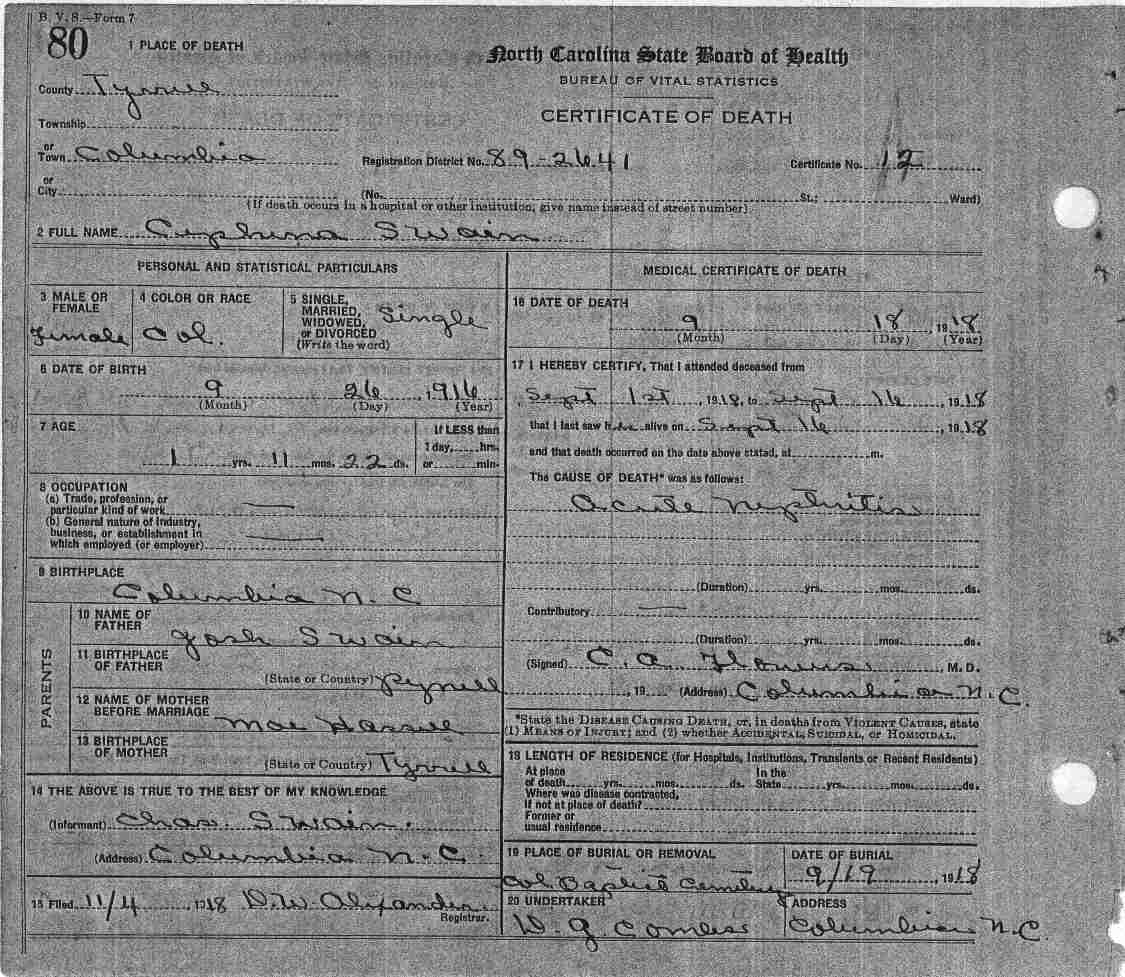 B. V. S.—Form 7
80
1 PLACE OF DEATH
North Carolina State Board of Health
BUREAU OF VITAL STATISTICS
CERTIFICATE OF DEATH
County Tyrrell
Township
or Town Columbia
Registration District No. 89-2641
Certificate No. 12
or City (No. St.; Ward)
(If death occurs in a hospital or other institution, give name instead of street number)
2 FULL NAME Cyphena Swain
PERSONAL AND STATISTICAL PARTICULARS
3 MALE OR FEMALE Female
4 COLOR OR RACE Col.
5 SINGLE, MARRIED, WIDOWED, or DIVORCED (Write the word) Single
6 DATE OF BIRTH
9 26 , 1916
(Month) (Day) (Year)
7 AGE
1 yrs. 11 mos. 22 ds.
If LESS than 1 day, hrs. or min.
8 OCCUPATION
(a) Trade, profession, or particular kind of work —
(b) General nature of Industry, business, or establishment in which employed (or employer) —
9 BIRTHPLACE
Columbia N. C
PARENTS
10 NAME OF FATHER Josh Swain
11 BIRTHPLACE OF FATHER
(State or Country) Tyrrell
12 NAME OF MOTHER BEFORE MARRIAGE Mae Hassell
13 BIRTHPLACE OF MOTHER
(State or Country) Tyrrell
14 THE ABOVE IS TRUE TO THE BEST OF MY KNOWLEDGE
(Informant) Chas. Swain.
(Address) Columbia N. C.
15 Filed 11/4 1918 D. W. Alexander
Registrar.
MEDICAL CERTIFICATE OF DEATH
16 DATE OF DEATH
9 18 1918
(Month) (Day) (Year)
17 I HEREBY CERTIFY, That I attended deceased from
Sept 1st , 1918, to Sept 16 , 1918
that I last saw her alive on Sept 16 , 1918
and that death occurred on the date above stated, at m.
The CAUSE OF DEATH* was as follows:
Acute Nephritis
(Duration) yrs. mos. ds.
Contributory —
(Duration) yrs. mos. ds.
(Signed) C. A. Flowers , M. D.
, 19 (Address) Columbia N. C.
*State the DISEASE CAUSING DEATH, or, in deaths from VIOLENT CAUSES, state
(1) MEANS OF INJURY; and (2) whether ACCIDENTAL, SUICIDAL, or HOMICIDAL.
18 LENGTH OF RESIDENCE (for Hospitals, Institutions, Transients or Recent Residents)
At place of death yrs. mos. ds. In the State yrs. mos. ds.
Where was disease contracted,
If not at place of death?
Former or
usual residence
19 PLACE OF BURIAL OR REMOVAL
Col Baptist Cemetery
DATE OF BURIAL
9/19 , 1918
20 UNDERTAKER
ADDRESS
Columbia N. C.